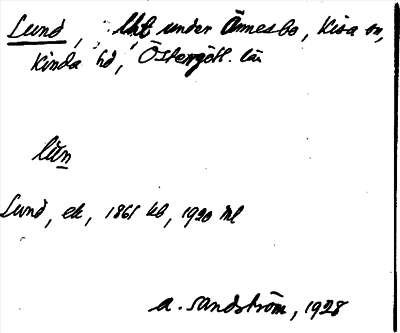 Lund, lht under Ånnesbo, Kisa sn,
Kinda hd, Östergötl. län
lun
Lund, ek, 1865 kb, 1920 ml
A. Sandström, 1928